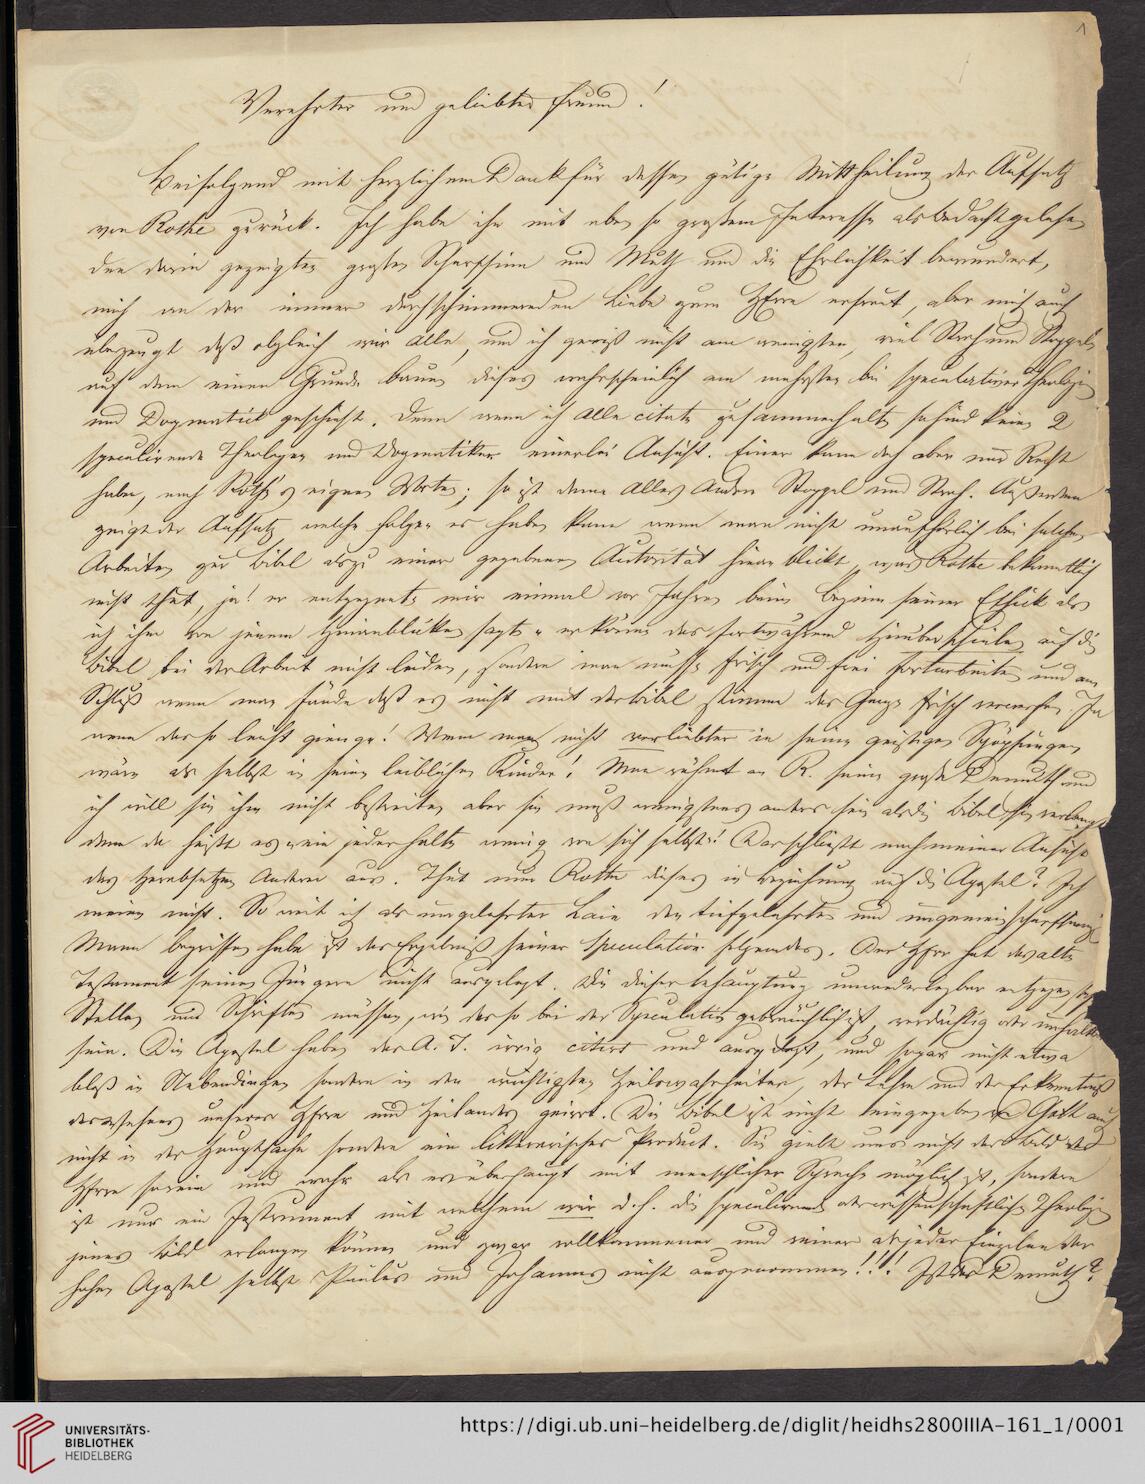 1
Verehrter und geliebter Freund!
Beifolgend mit herzlichem Dank für dessen gütige Mittheilung der Aufsatz
von Rothe zurück. Ich habe ihn mit eben so großem Interesse als Bedacht gelesen
den darin gezeigten großen Scharfsinn und Muth und die Ehrlichkeit bewundert,
mich an der immer durchschimmernden Liebe zum HErrn erfreut, aber mich auch
überzeugt daß obgleich wir alle, und ich gewiß nicht am wenigsten, viel Stroh und Stoppeln
auf dem einen Grunde bauen dieses wahrscheinlich am mehrsten bei speculativer Theologie
und Dogmatick geschieht. Denn wenn ich alle citate zusammenhalte so sind keine 2
speculirende Theologen und Dogmatiker einerlei Ansicht. Einer kann doch aber nur Recht
haben, nach Rothe's eignen Worten; so ist denn alles Andre Stoppel und Stroh. Außerdem
zeigt der Aufsatz welche Folgen es haben kann wenn man nicht unaufhörlich bei solchen
Arbeiten zur Bibel als zu einer gegebenen Autorität hinan blickt, was Rothe bekanntlich
nicht thut, ja! er entgegnete mir einmal vor Jahren beim Beginn seiner Ethick als
ich ihm von jenem Hinanblicken sagte "er könne das fortwährend Hinüberschielen auf die
Bibel bei der Arbeit nicht leiden, sondern man müsse frisch und frei fortarbeiten und am
Schluß wenn man fände daß es nicht mit der Bibel stimme das Ganze frisch verwerfen. Ja
wenn das so leicht gienge! Wenn man nicht verliebter in seine geistigen Schöpfungen
wäre als selbst in seine leiblichen Kinder! Man rühmt an R. seine große Demuth und
ich will sie ihm nicht bestreiten aber sie muß wenigstens anders sein als die Bibel sie verlangt
denn da heißt es "ein jeder halte wenig von sich selbst"! Das schließt nach meiner Ansicht
das Herabsetzen Anderer aus. Thut nun Rothe dieses in Beziehung auf die Apostel? Ich
meine nicht. So weit ich als ungelehrter Laie den tiefgelehrten und ungemein scharfsinnigen
Mann begriffen habe ist das Ergebniß seiner Speculation folgendes. Der HErr hat das alte
Testament seinen Jüngern nicht ausgelegt. Die dieser Behauptung unwiderlegbar entgegen
Stellen und Schriften müssen, wie das so bei der Speculation gebräuchlich ist, verdächtig oder
sein. Die Apostel haben das A. T. irrig citirt und ausgelegt, und sogar nicht etwa
blos in Nebendingen sondern in den wichtigsten Heilswahrheiten, der Lehre und der Erkenntniß
des Wesens unseres HErrn und Heilandes geirrt. Die Bibel ist nicht eingegeben von Gott auch
nicht in der Hauptsache sondern ein litterarisches Product. Sie giebt uns nicht das Bild des
HErrn so rein und wahr als es überhaupt mit menschlicher Sprache möglich ist, sondern
ist nur ein Instrument mit welchem wir d. h. die speculirende oder wissenschaftliche Theologie
jenes Bild erlangen können und zwar vollkommener und reiner als jeder Einzelne der
hohen Apostel selbst Paulus und Johannes nicht ausgenommen!!! Ist das Demuth?
UNIVERSITÄTS-
BIBLIOTHEK
HEIDELBERG
https://digi.ub.uni-heidelberg.de/diglit/heidhs2800IIIA-161_1/0001